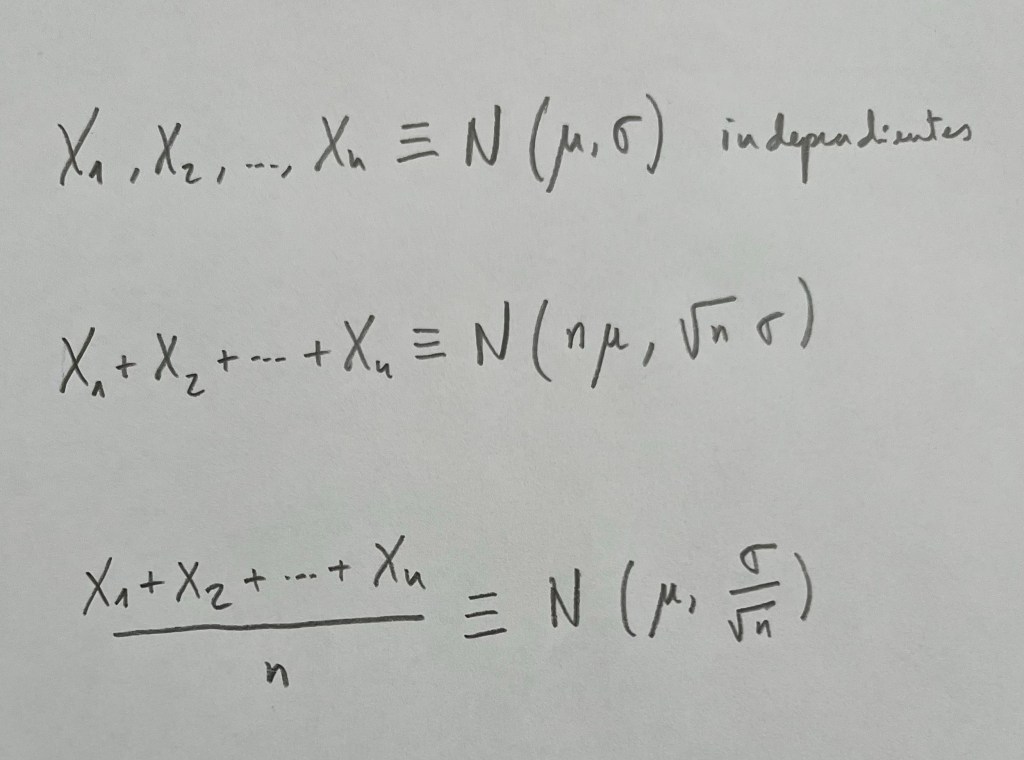 X₁, X₂, ..., Xₙ ≡ N (μ, σ) independientes
X₁ + X₂ + ... + Xₙ ≡ N ( nμ, √n σ )
(X₁ + X₂ + ... + Xₙ) / n ≡ N ( μ, σ/√n )